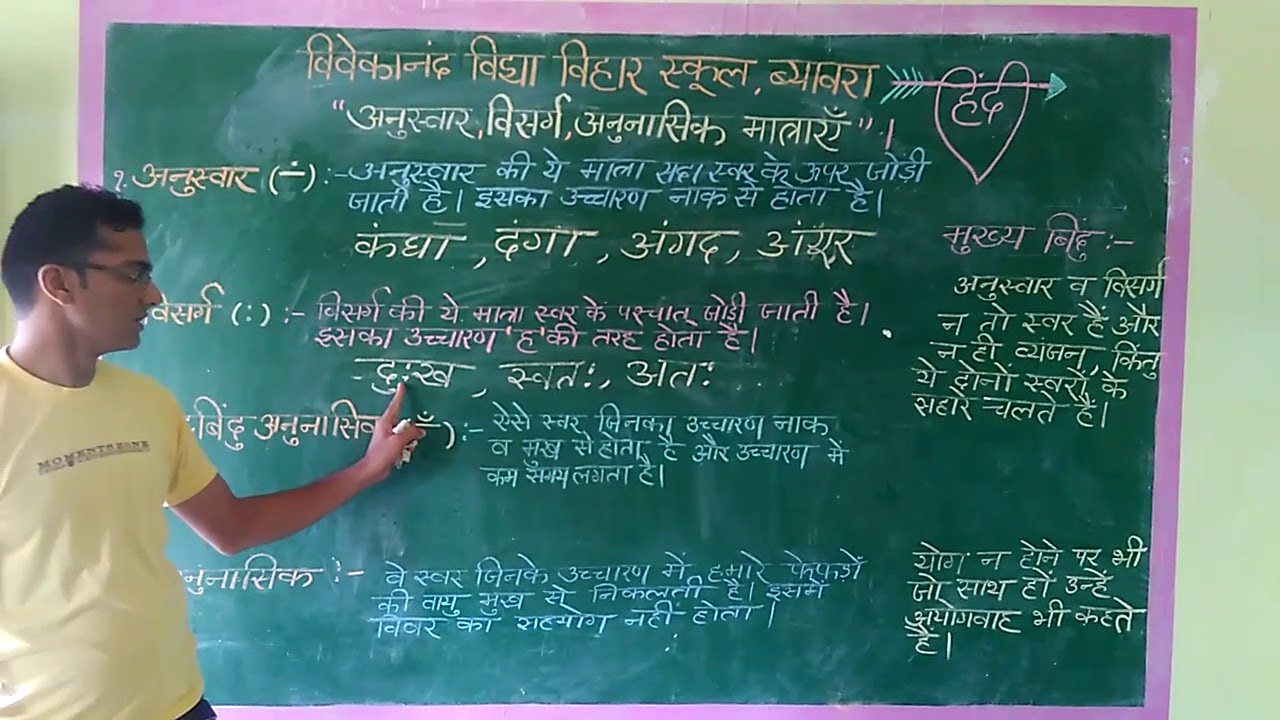 विवेकानंद विद्या विहार स्कूल, ब्यावरा
हिंदी
"अनुस्वार, विसर्ग, अनुनासिक मात्राएँ"।
१. अनुस्वार (ं) :- अनुस्वार की ये मात्रा सदा स्वर के ऊपर जोड़ी
जाती है। इसका उच्चारण नाक से होता है।
कंघा, दंगा, अंगद, अंगूर
विसर्ग (:) :- विसर्ग की ये मात्रा स्वर के पश्चात् जोड़ी जाती है।
इसका उच्चारण 'ह' की तरह होता है।
दुःख, स्वतः, अतः
बिंदु अनुनासिक ँ) :- ऐसे स्वर जिनका उच्चारण नाक
व मुख से होता है और उच्चारण में
कम समय लगता है।
नुनासिक :- वे स्वर जिनके उच्चारण में हमारे फेफड़ों
की वायु मुख से निकलती है। इसमें
विवर का सहयोग नहीं होता।
मुख्य बिंदु :-
अनुस्वार व विसर्ग
न तो स्वर हैं और
न ही व्यंजन, किंतु
ये दोनों स्वरों के
सहारे चलते हैं।
योग न होने पर भी
जो साथ हों उन्हें
अयोगवाह भी कहते
हैं।
MOMENTSRONE